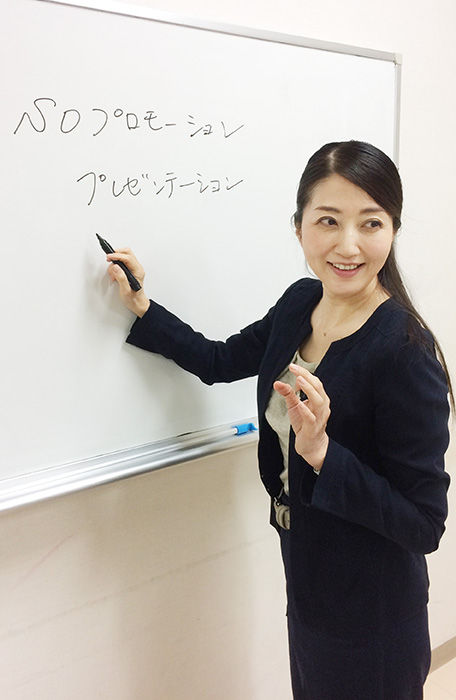 NOプロモーション
プレゼンテーション